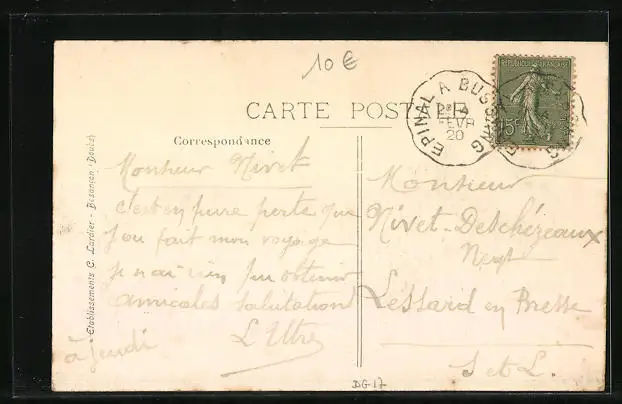 10€
CARTE POSTALE
REPUBLIQUE FRANÇAISE
15c
EPINAL A BUSSANG
FEVR
20
Correspondance
Monsieur Nivet
C'est en pure perte que
j'ai fait mon voyage
je n'ai rien pu obtenir
amicales salutations
L Utre
à jeudi
Monsieur
Nivet-Deschézeaux
Negt
Lessard en Bresse
S et L.
Etablissements C. Lardier - Besançon (Doubs)
DG-17